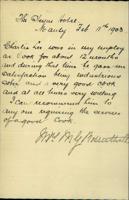 The Steyne Hotel.
Manly Feb. 11th 1903
Charlie Lee was in my employ
as Cook for about 12 months
and during that time he gave me
satisfaction being industrious
sober and a very good cook
and at all times very willing
I can recommend him to
any one requiring the services
of a good Cook